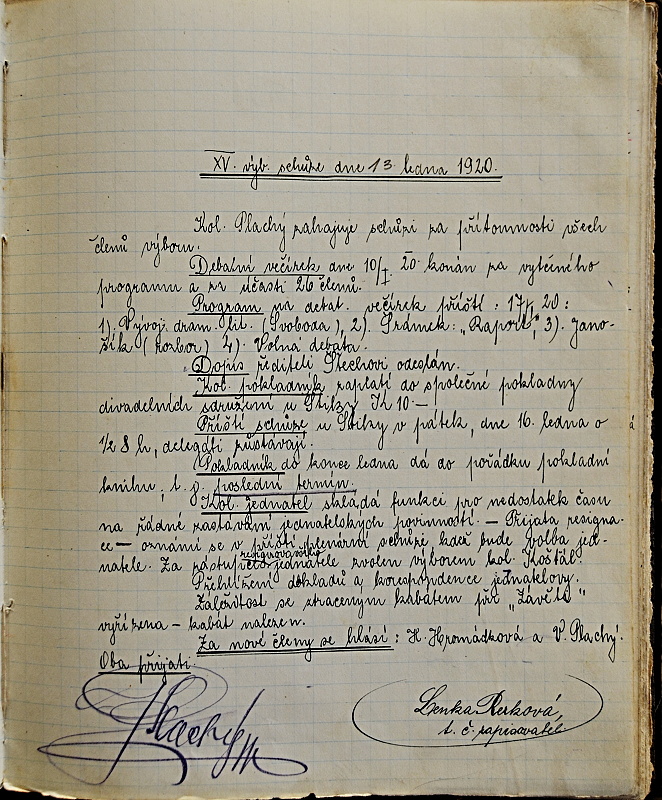 XV. výb. schůze dne 13. ledna 1920.
Kol. Plachý zahajuje schůzi za přítomnosti všech
členů výboru.
Debatní večírek dne 10/I. 20. konán za vytčeného
programu a za účasti 26 členů.
Program na debat. večírek příští: 17/I. 20:
1). Vývoj dram. lit. (Svoboda), 2). Šrámek: „Raport“, 3). Jano-
šík (rozbor) 4). Volná debata.
Dopis řediteli Štechovi odeslán.
Kol. pokladník zaplatí do společné pokladny
divadelních sdružení u Štilzy K 10.—
Příští schůze u Štilzy v pátek, dne 16. ledna o
½ 8 h, delegáti zůstávají.
Pokladník do konce ledna dá do pořádku pokladní
knihu, t. j. poslední termín.
Kol. jednatel skládá funkci pro nedostatek času
na řádné zastávání jednatelských povinností. — Přijata resigna-
ce — oznámí se v příští plenární schůzi kdež bude volba jed-
natele. Za zástupce jednatele zvolen výborem kol. Košťál.
Přehlížení dokladů a korespondence jednatelovy.
Záležitost se ztraceným kabátem při „Závěti“
vyřízena — kabát nalezen.
Za nové členy se hlásí: H. Hromádková a V. Plachý.
Oba přijati.
Plachý
Lenka Rerková,
t. č. zapisovatel.